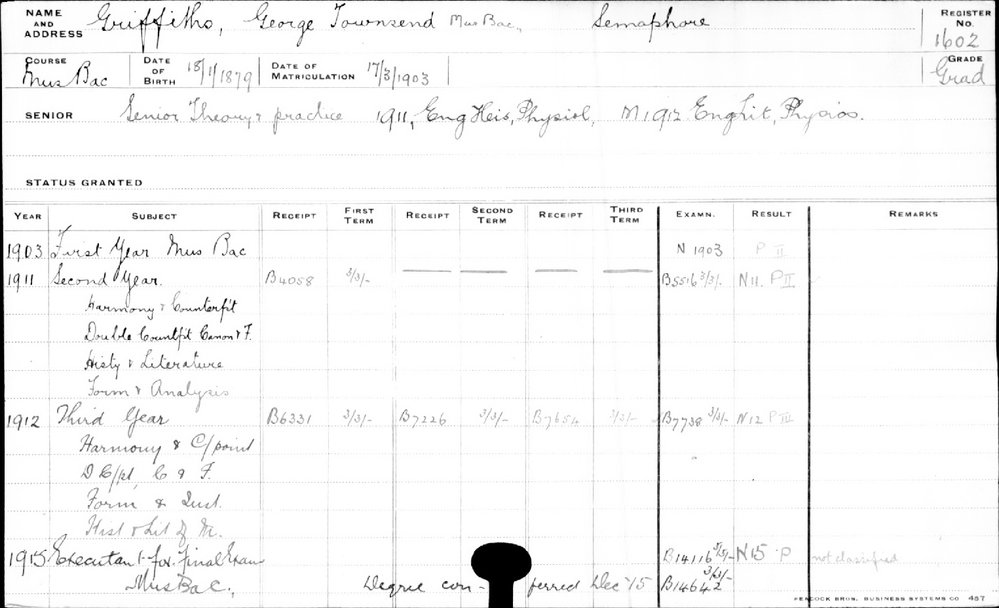 NAME AND ADDRESS Griffiths, George Townsend Mus Bac., Semaphore REGISTER No. 1602
COURSE Mus Bac DATE OF BIRTH 18/1/1879 DATE OF MATRICULATION 17/3/1903 GRADE Grad
SENIOR Senior Theory & practice 1911, Eng Heis, Physiol, M 1912 Eng Lit, Physiog.
STATUS GRANTED
YEAR SUBJECT RECEIPT FIRST TERM RECEIPT SECOND TERM RECEIPT THIRD TERM EXAMN. RESULT REMARKS
1903 First Year Mus Bac N 1903 P II
1911 Second Year. B4058 3/3/- — — — — B5516 3/3/- N11. P II
Harmony & Counterpt
Double Countpt Canon & F.
Histy & Literature
Form & Analysis
1912 Third Year B6331 3/3/- B7226 3/3/- B7654 3/3/- B7738 3/3/- N12 P III
Harmony & C/point
D C/pt, C & F.
Form & Inst.
Hist & Lit of M.
1915 Executant for Final Exam B14116 5/5/- N15 P not classified
Mus Bac., Degree con- ferred Dec '15 B14642 3/3/-
PEACOCK BROS. BUSINESS SYSTEMS CO 457